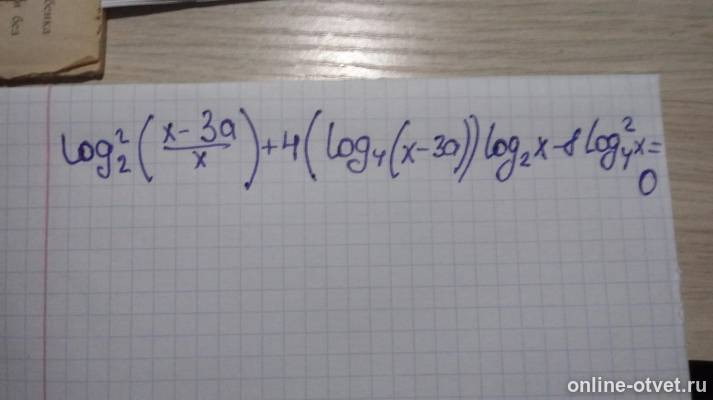 бенка
без
log₂²((x-3a)/x)+4(log₄(x-3a))log₂x-8log₄²x=
0
online-otvet.ru